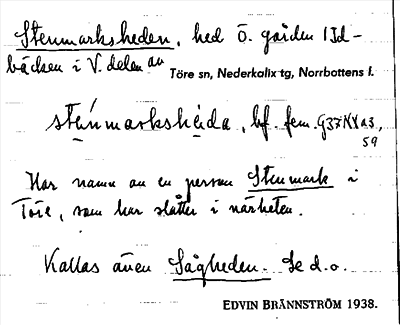 Stenmarksheden, hed ö. gården 1 Id-
bäcken i V. delen av
Töre sn, Nederkalix tg, Norrbottens l.
sténmarkshèida, bf. fem. G37NXa3,
59
Har namn av en person Stenmark i
Töre, som har slåtter i närheten.
Kallas även Sågheden. Se d.o.
EDVIN BRÄNNSTRÖM 1938.